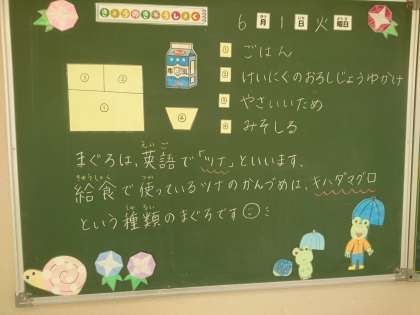 きょうのきゅうしょく
6月1日火曜日
① ごはん
② けいにくのおろしじょうゆかけ
③ やさいいため
④ みそしる
② ③
① ④
牛乳
まぐろは、英語で「ツナ」といいます。
給食で使っているツナのかんづめは、キハダマグロ
という種類のまぐろです